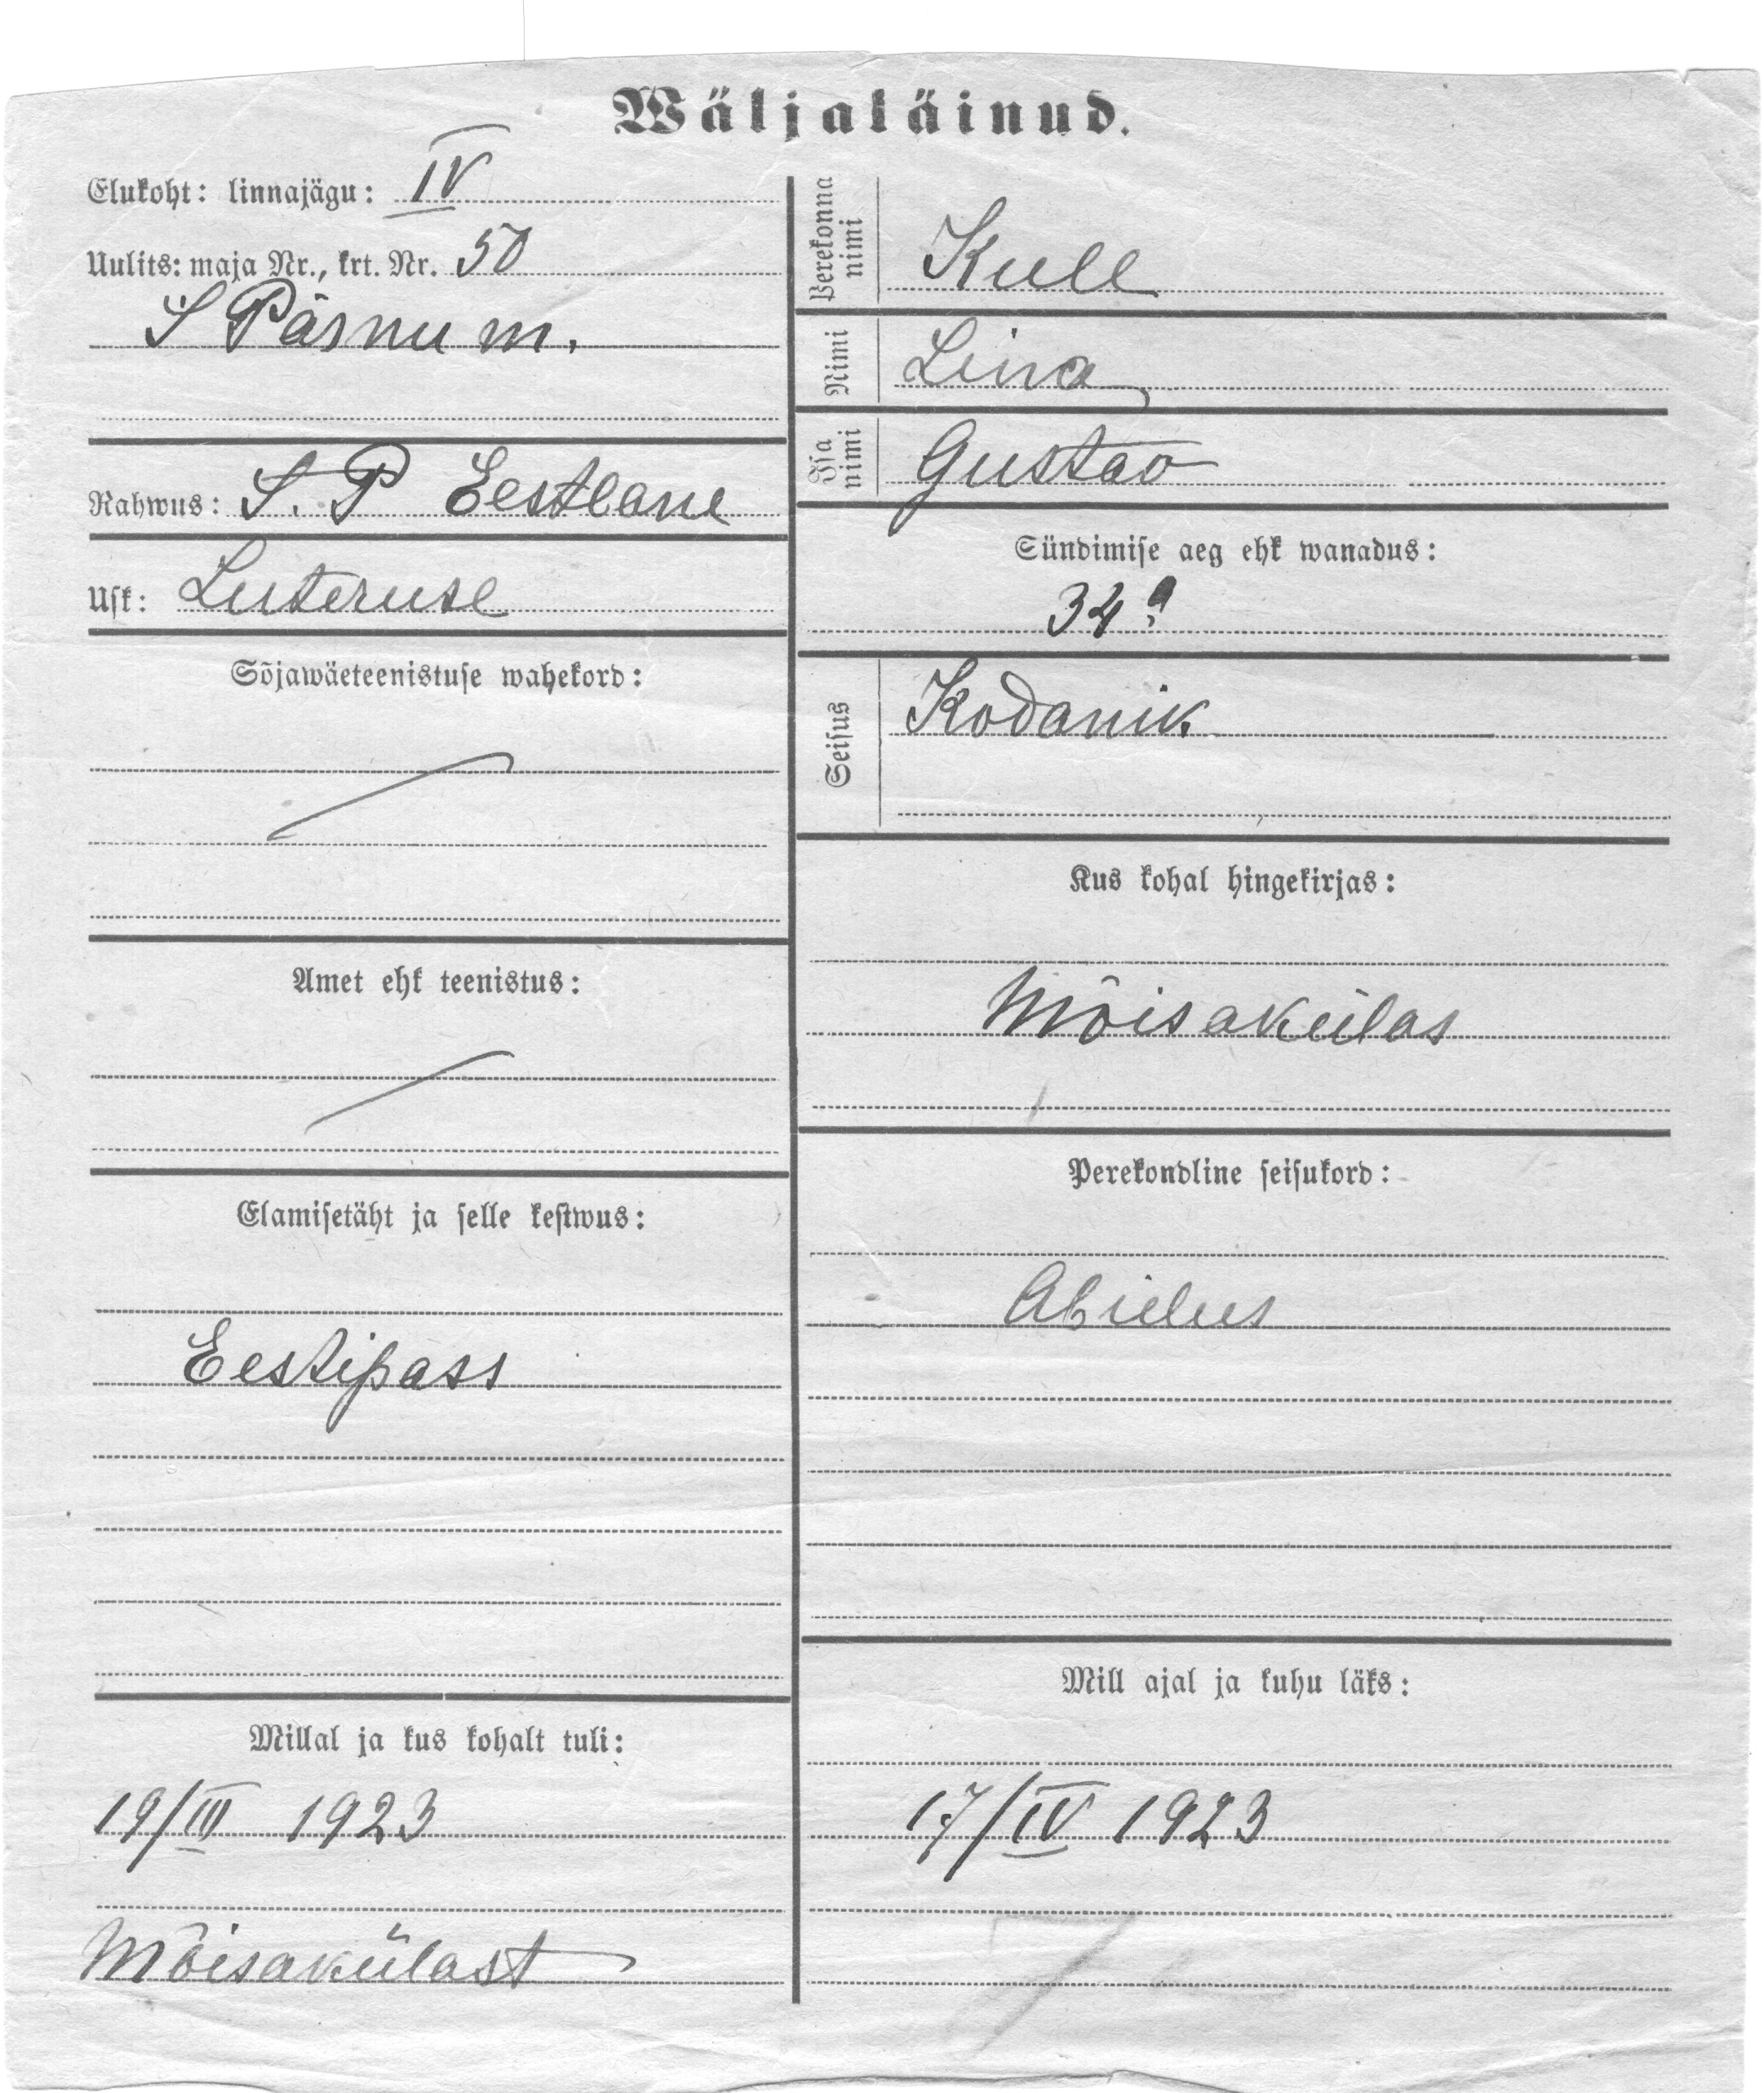 Wäljaläinud.
Elukoht: linnajägu: IV
Uulits: maja Nr., krt. Nr. 50
S Pärnu m.
Rahwus: S. P Eestlane
Usk: Luteruse
Sõjawäeteenistuse wahekord:
Amet ehk teenistus:
Elamisetäht ja selle kestwus:
Eestipass
Millal ja kus kohalt tuli:
19/III 1923
Mõisakülast
Perekonna
nimi
Kull
Nimi
Lina
Isa
nimi
Gustav
Sündimise aeg ehk wanadus:
34 a
Seisus
Kodanik
Kus kohal hingekirjas:
Mõisakülas
Perekondline seisukord:
Abielus
Mill ajal ja kuhu läks:
17/IV 1923